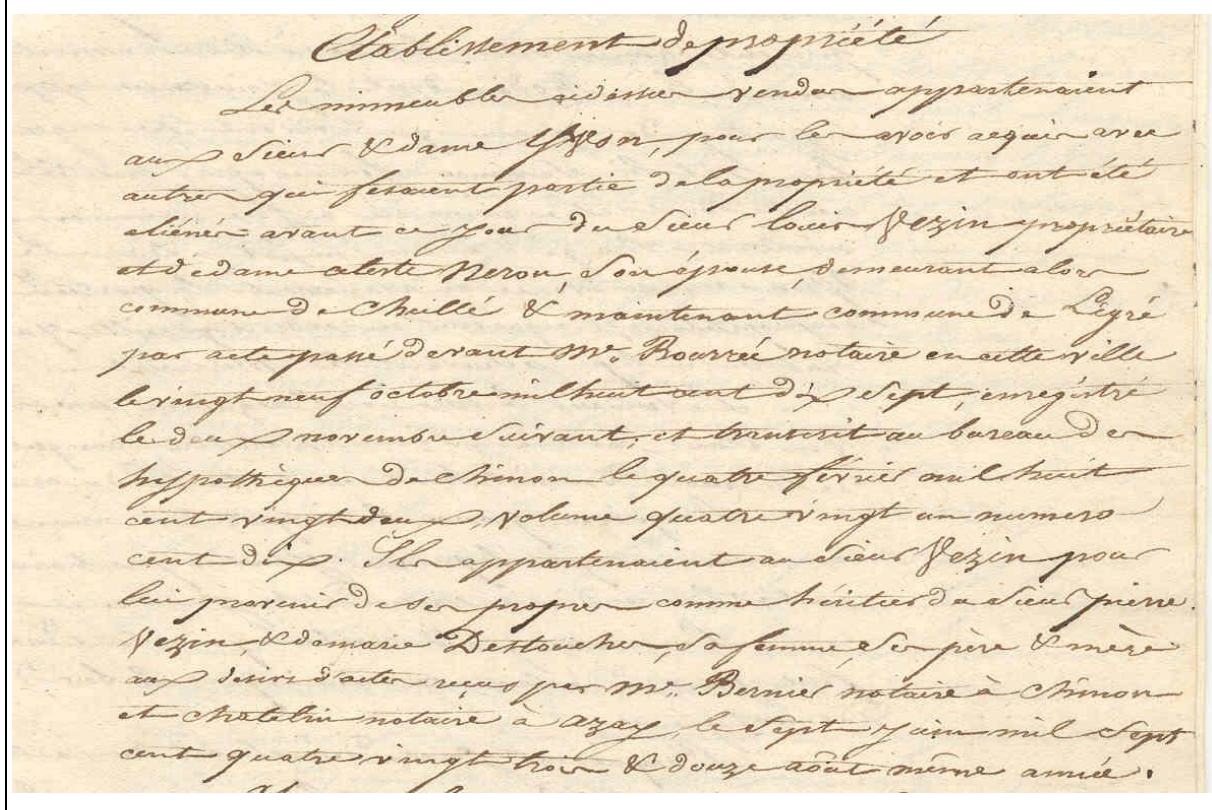 Etablissement de propriété
Les immeubles ci dessus vendus appartenaient
aux sieur & dame Yvon, pour les avoir acquis avec
autres qui fesaient partie de la propriété et ont été
aliénés avant ce jour du sieur Louis Vezin propriétaire
et de dame celeste Neron son épouse demeurant alors
commune de Cheillé & maintenant commune de Légré
par acte passé devant Me. Bourrée notaire en cette ville
le vingt neuf octobre mil huit cent dix sept, enregistré
le deux novembre suivant, et transcrit au bureau des
hyppothèques de chinon le quatre février mil huit
cent vingt deux, volume quatre vingt un numero
cent dix. Ils appartenaient au sieur Vezin pour
lui provenir de ses propres comme héritier du sieur pierre
Vezin, & de marie Destouches, sa femme, ses père & mère
aux desirs d'actes reçus par Me. Bernier notaire à chinon
et chatelin notaire à azay, le sept juin mil sept
cent quatre vingt trois & douze août même année.